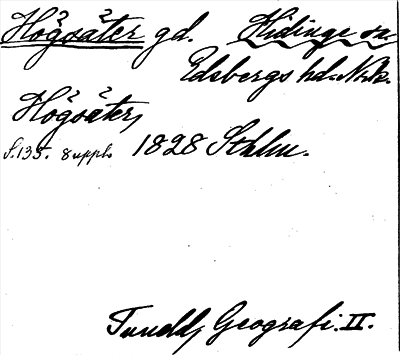 Högsäter gd. Hidinge sn.
Edsbergs hd. Nrk.
Högsäter,
S. 135. 8 uppl. 1828 Sthlm.
Tuneld, Geografi. II.